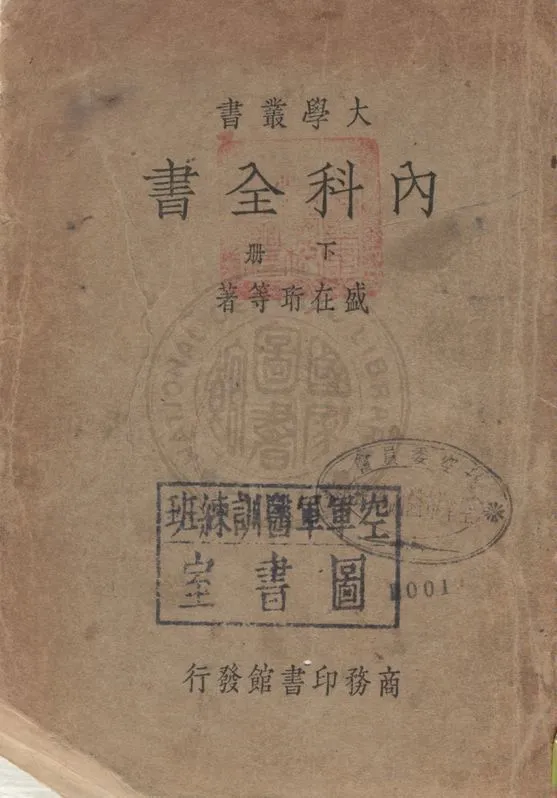 大學叢書
內科全書
下册
盛在珩等著
空軍軍醫訓練班
圖書室
商務印書館發行